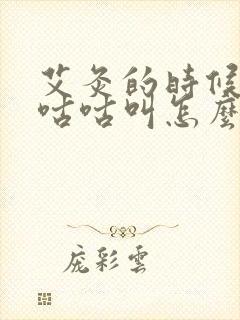 艾灸的時候
咕咕叫怎麼
庞彩雲